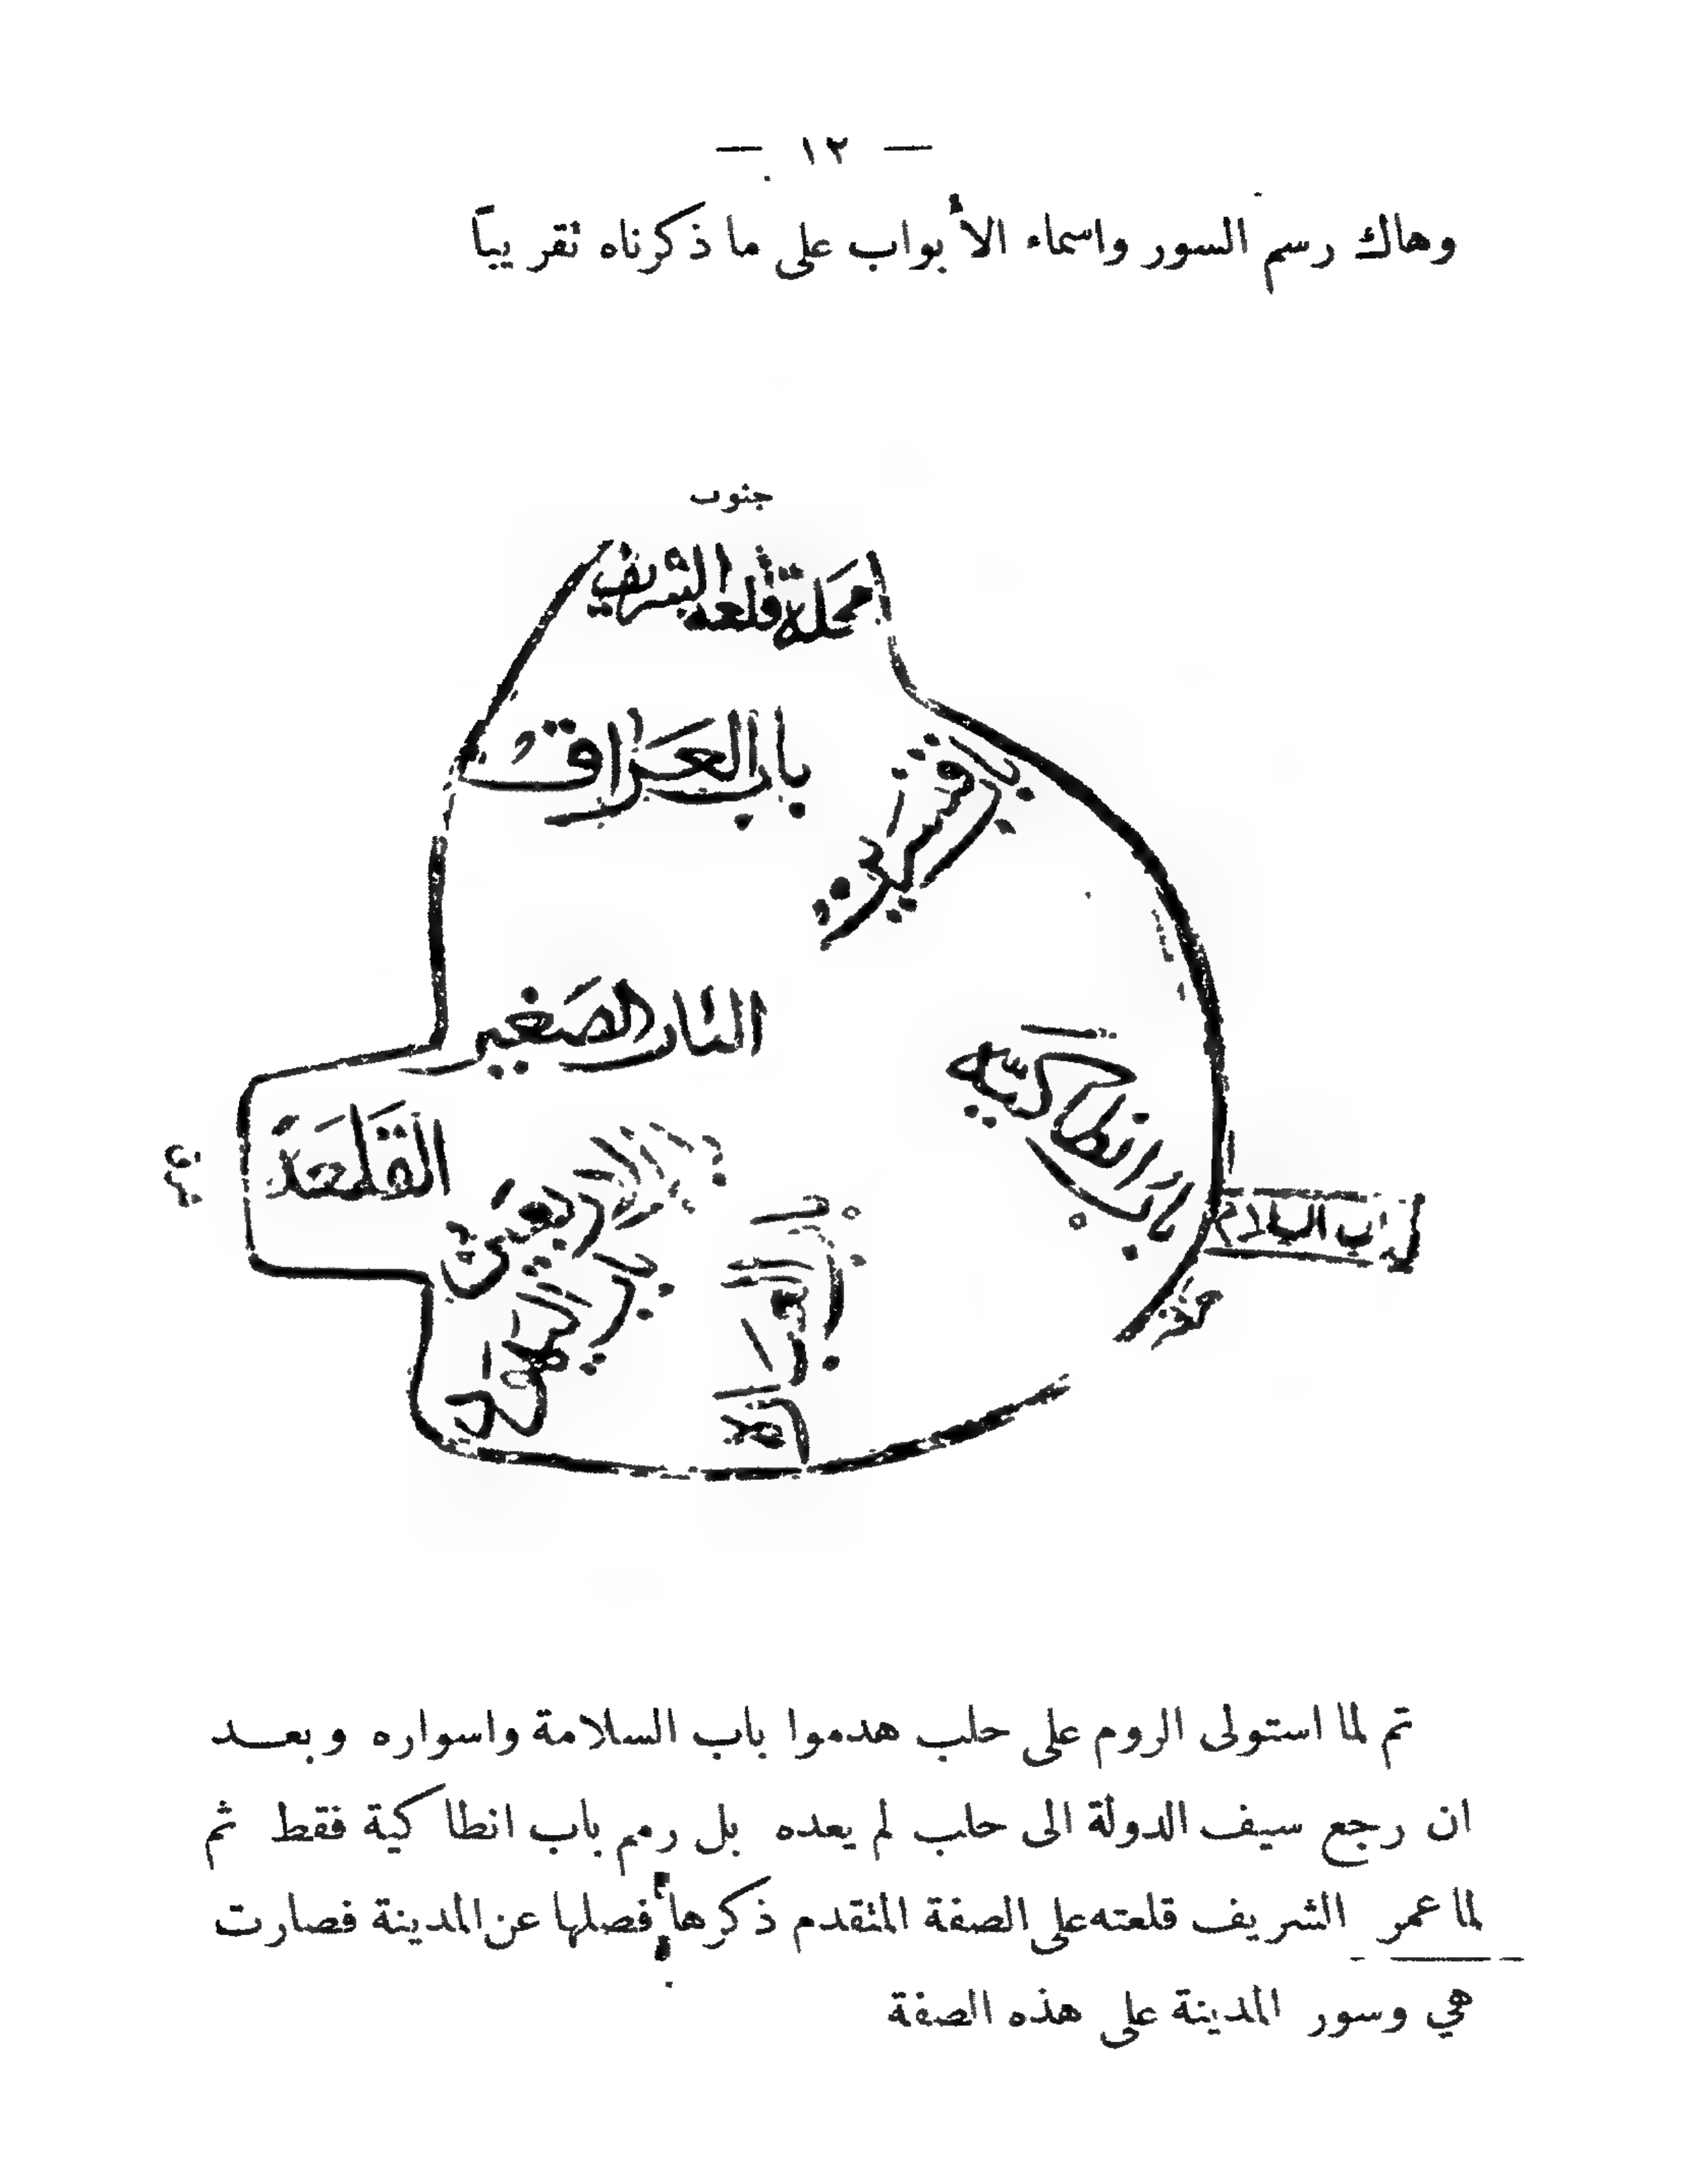 — ١٢ —
وهاك رسم السور واسماء الأبواب على ما ذكرناه تقريباً
جنوب
محلة قلعة الشريف
باب العراق
باب قنسرين
الباب الصغير
باب انطاكية
القلعة
باب السلامة
باب اربعين
باب اليهود
باب
تم لما استولى الروم على حلب هدموا باب السلامة واسواره وبعد
ان رجع سيف الدولة الى حلب لم يعده بل رمم باب انطاكية فقط ثم
لما عمر الشريف قلعته على الصفة المتقدم ذكرها فصلها عن المدينة فصارت
هي وسور المدينة على هذه الصفة